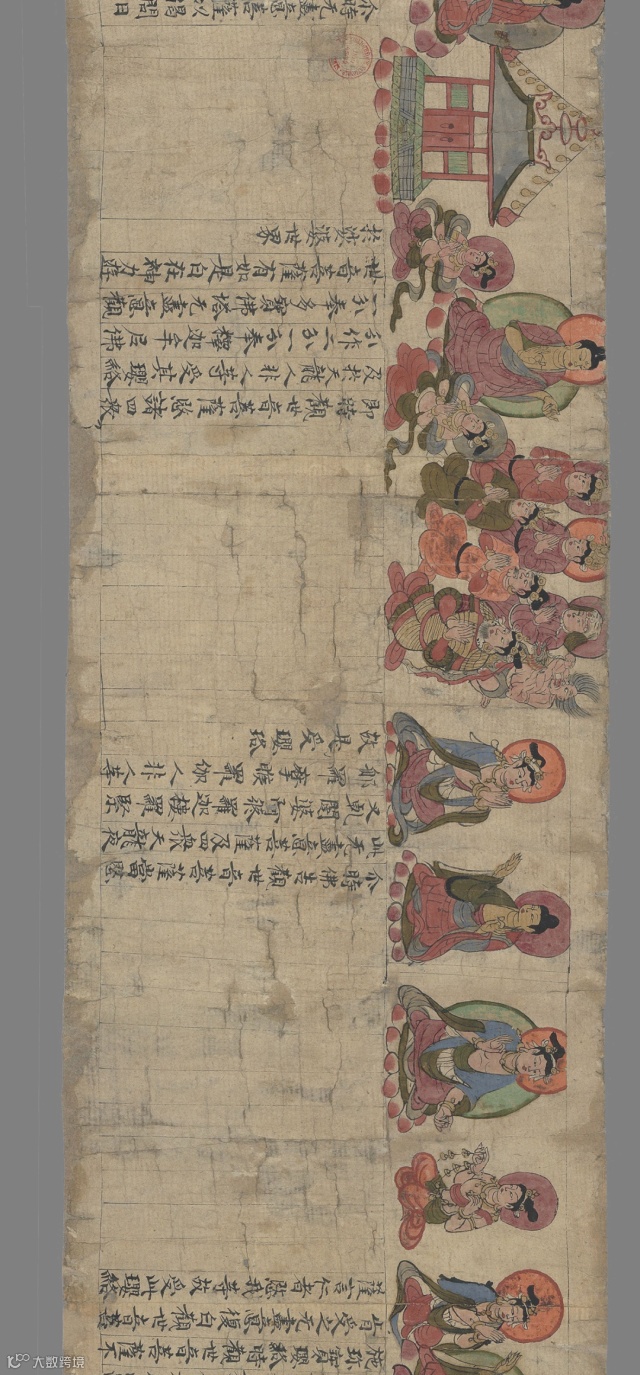 施珎寶瓔珞時觀世音菩薩不
肯受之无盡意復白觀世音菩
薩言仁者愍我等故受此瓔珞
尒時佛告觀世音菩薩當愍
此无盡意菩薩及四衆天龍夜
叉乹闥婆阿脩羅迦樓羅緊
那羅摩睺羅伽人非人等
故是受瓔珞
即時觀世音菩薩愍諸四衆
及於天龍人非人等受其瓔珞
分作二分一分奉釋迦牟尼佛
一分奉多寶佛塔无盡意觀
世音菩薩有如是自在神力遊
於娑婆世界
尒時无盡意菩薩以偈問曰
大数跨境